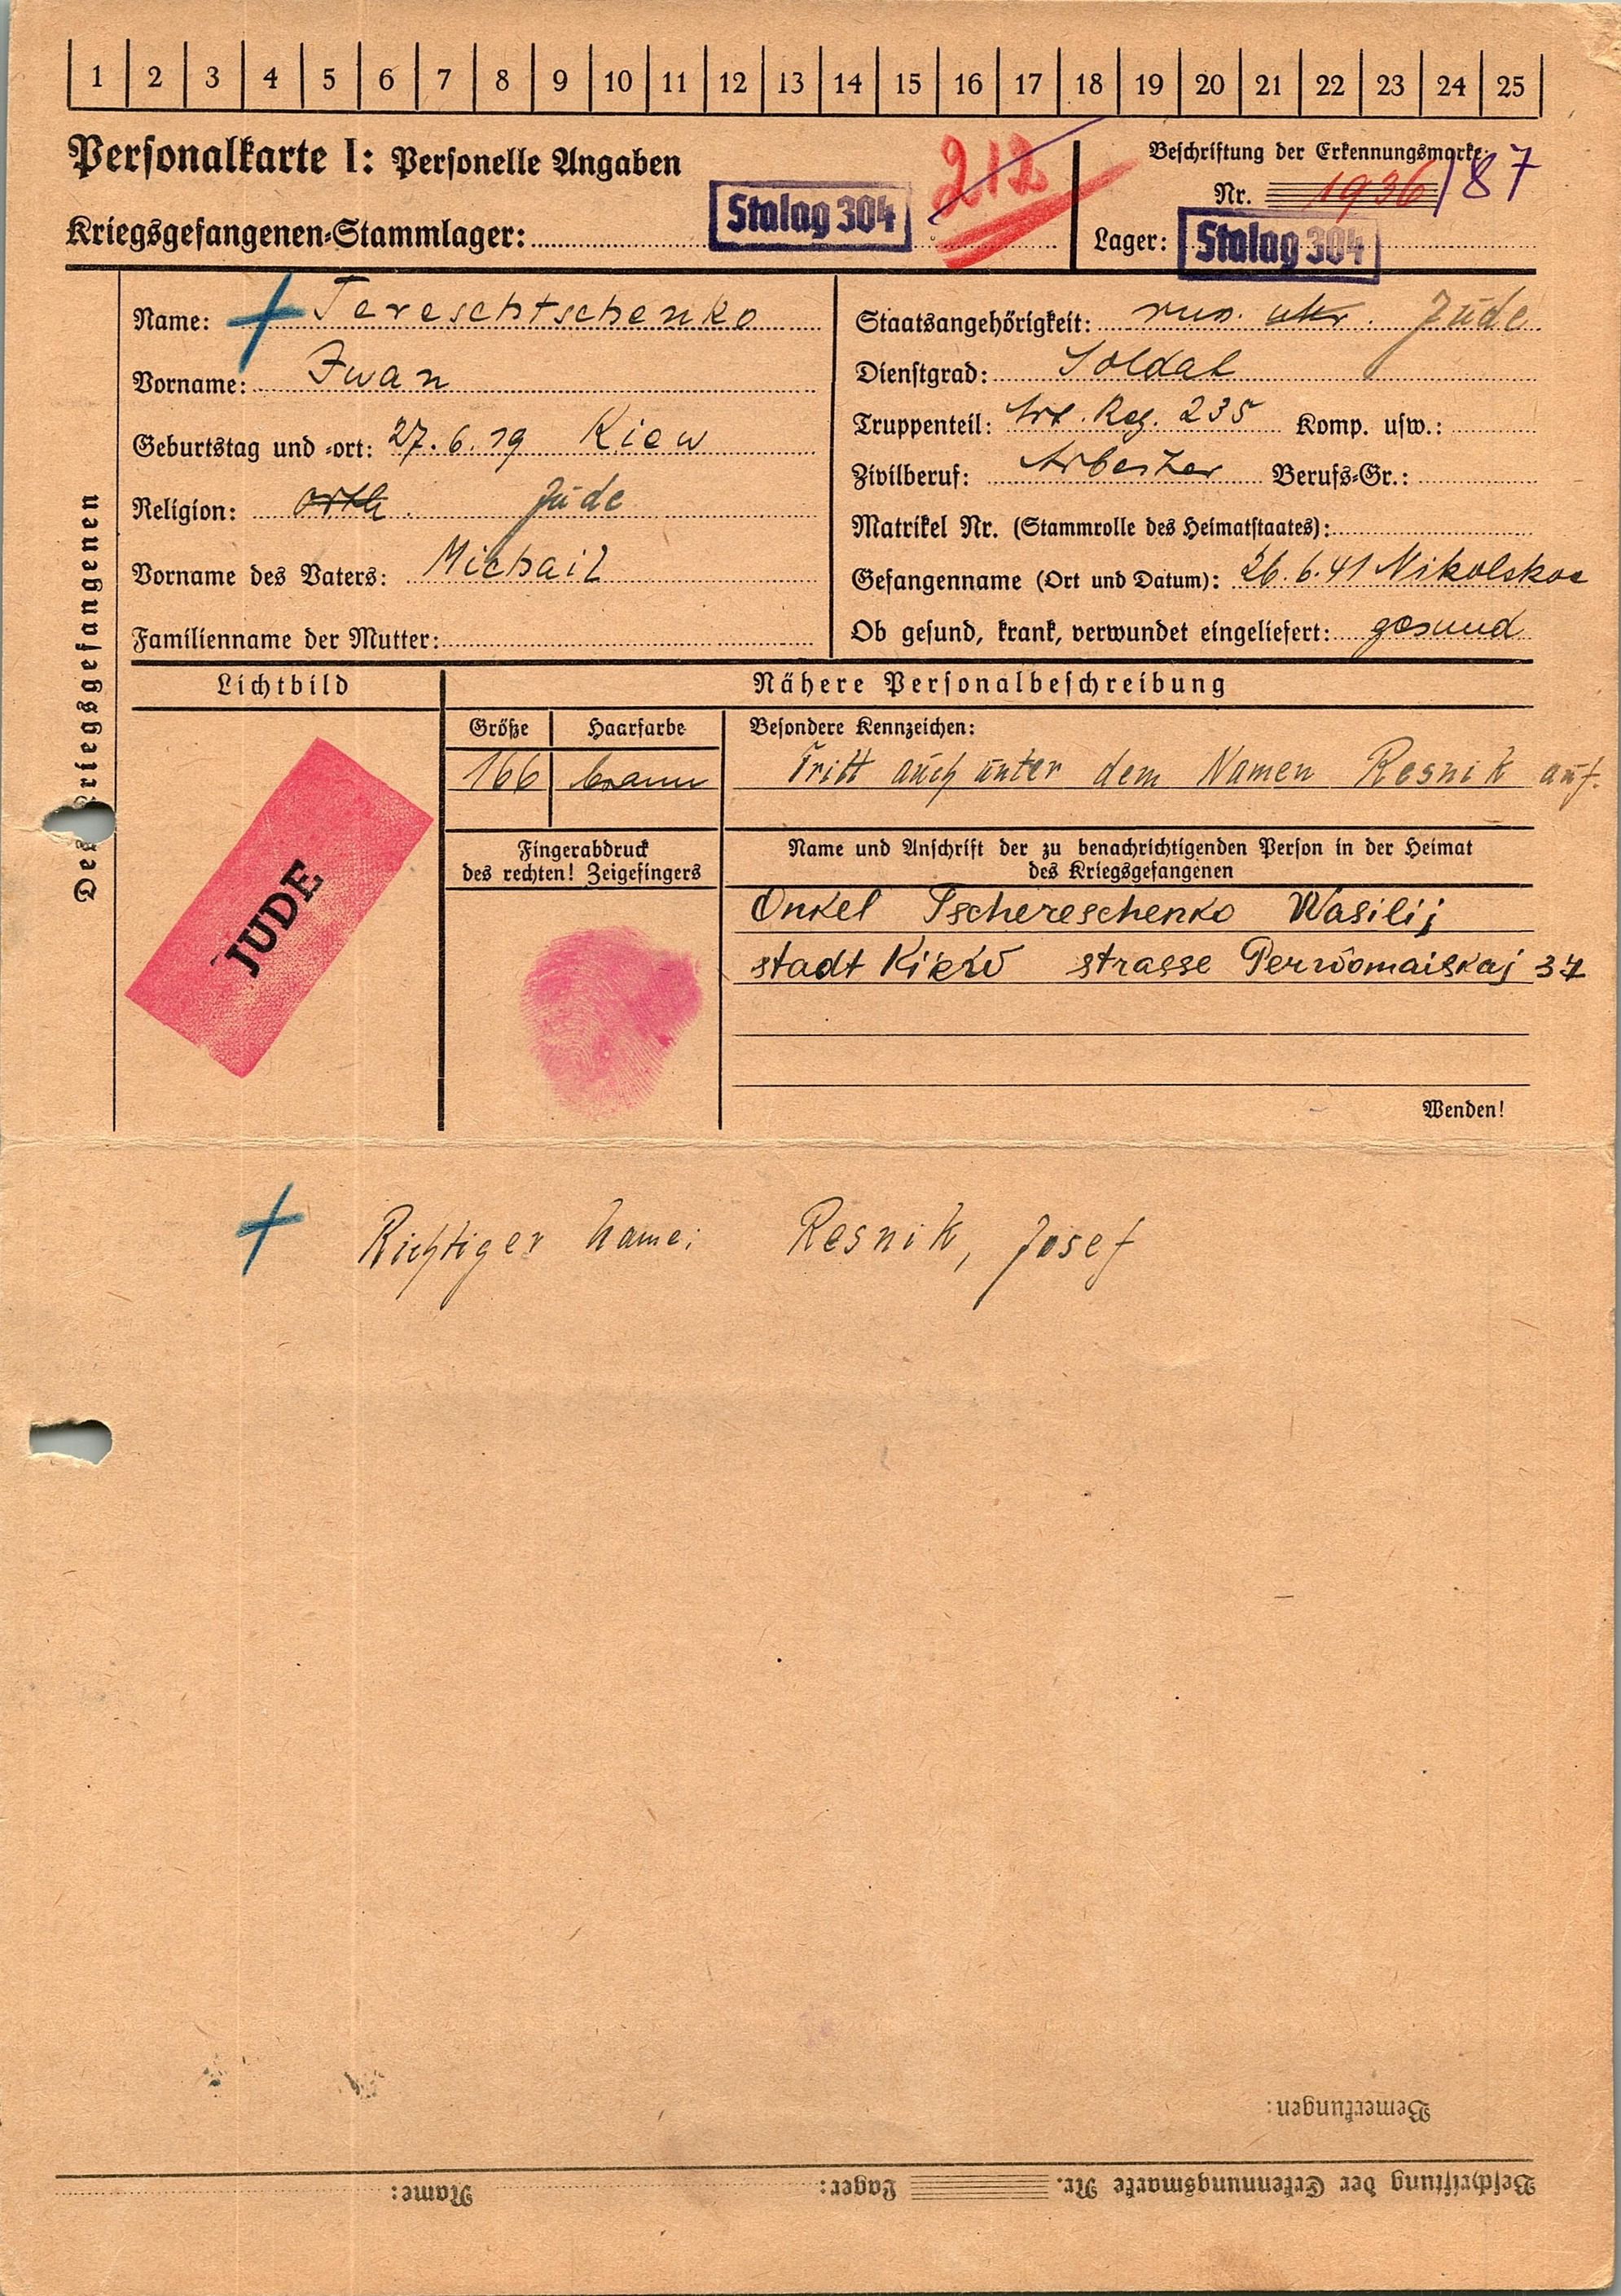 1 2 3 4 5 6 7 8 9 10 11 12 13 14 15 16 17 18 19 20 21 22 23 24 25
Personalkarte I: Personelle Angaben
212
Beschriftung der Erkennungsmarke:
Nr. 1936/87
Kriegsgefangenen-Stammlager: Stalag 304
Lager: Stalag 304
Des Kriegsgefangenen
Name: Tereschtschenko
Vorname: Iwan
Geburtstag und -ort: 27.6.19 Kiew
Religion: orth. Jude
Vorname des Vaters: Michail
Familienname der Mutter:
Staatsangehörigkeit: rus. ukr. Jude
Dienstgrad: Soldat
Truppenteil: Art. Reg. 235 Komp. usw.:
Zivilberuf: Arbeiter Berufs-Gr.:
Matrikel Nr. (Stammrolle des Heimatstaates):
Gefangenname (Ort und Datum): 26.6.41 Nikolskoe
Ob gesund, krank, verwundet eingeliefert: gesund
Lichtbild
JUDE
Nähere Personalbeschreibung
Größe Haarfarbe
166 braun
Besondere Kennzeichen:
Tritt auch unter dem Namen Resnik auf.
Fingerabdruck
des rechten! Zeigefingers
Name und Anschrift der zu benachrichtigenden Person in der Heimat
des Kriegsgefangenen
Onkel Tschereschenko Wasilij
stadt Kiew strasse Perwomaiskaj 37
Wenden!
Richtiger Name: Resnik, Josef
Bemerkungen:
Beschriftung der Erkennungsmarke Nr. Lager: Name: